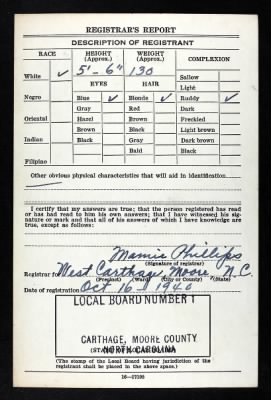 REGISTRAR'S REPORT
DESCRIPTION OF REGISTRANT
RACE
HEIGHT (Approx.)
WEIGHT (Approx.)
COMPLEXION
White ✓
5'-6" 130
Sallow
Light
EYES HAIR
Negro
Blue ✓ Blonde ✓ Ruddy ✓
Gray Red Dark
Oriental
Hazel Brown Freckled
Brown Black Light brown
Indian
Black Gray Dark brown
Bald Black
Filipino
Other obvious physical characteristics that will aid in identification
I certify that my answers are true; that the person registered has read
or has had read to him his own answers; that I have witnessed his sig-
nature or mark and that all of his answers of which I have knowledge are
true, except as follows:
Mamie Phillips
(Signature of registrar)
Registrar for West Carthage Moore N.C.
(Precinct) (Ward) (City or county) (State)
Date of registration Oct 16 1940
LOCAL BOARD NUMBER 1
CARTHAGE, MOORE COUNTY
NORTH CAROLINA
(The stamp of the Local Board having jurisdiction of the
registrant shall be placed in the above space.)
16—17105